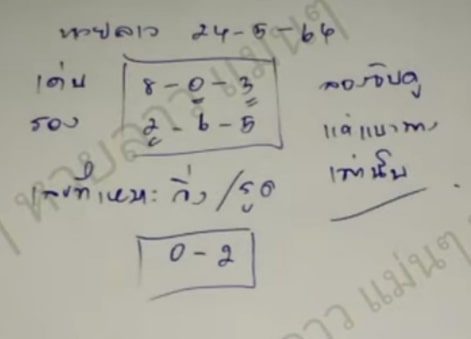 หวยลาว 24-5-64
เด่น 8-0-3 ลองจับดู
รอง 2-6-5 แค่แนวทาง
เลขที่เหมาะ วิ่ง/รูด เท่านั้น
0-2
หวยลาว แม่นๆ